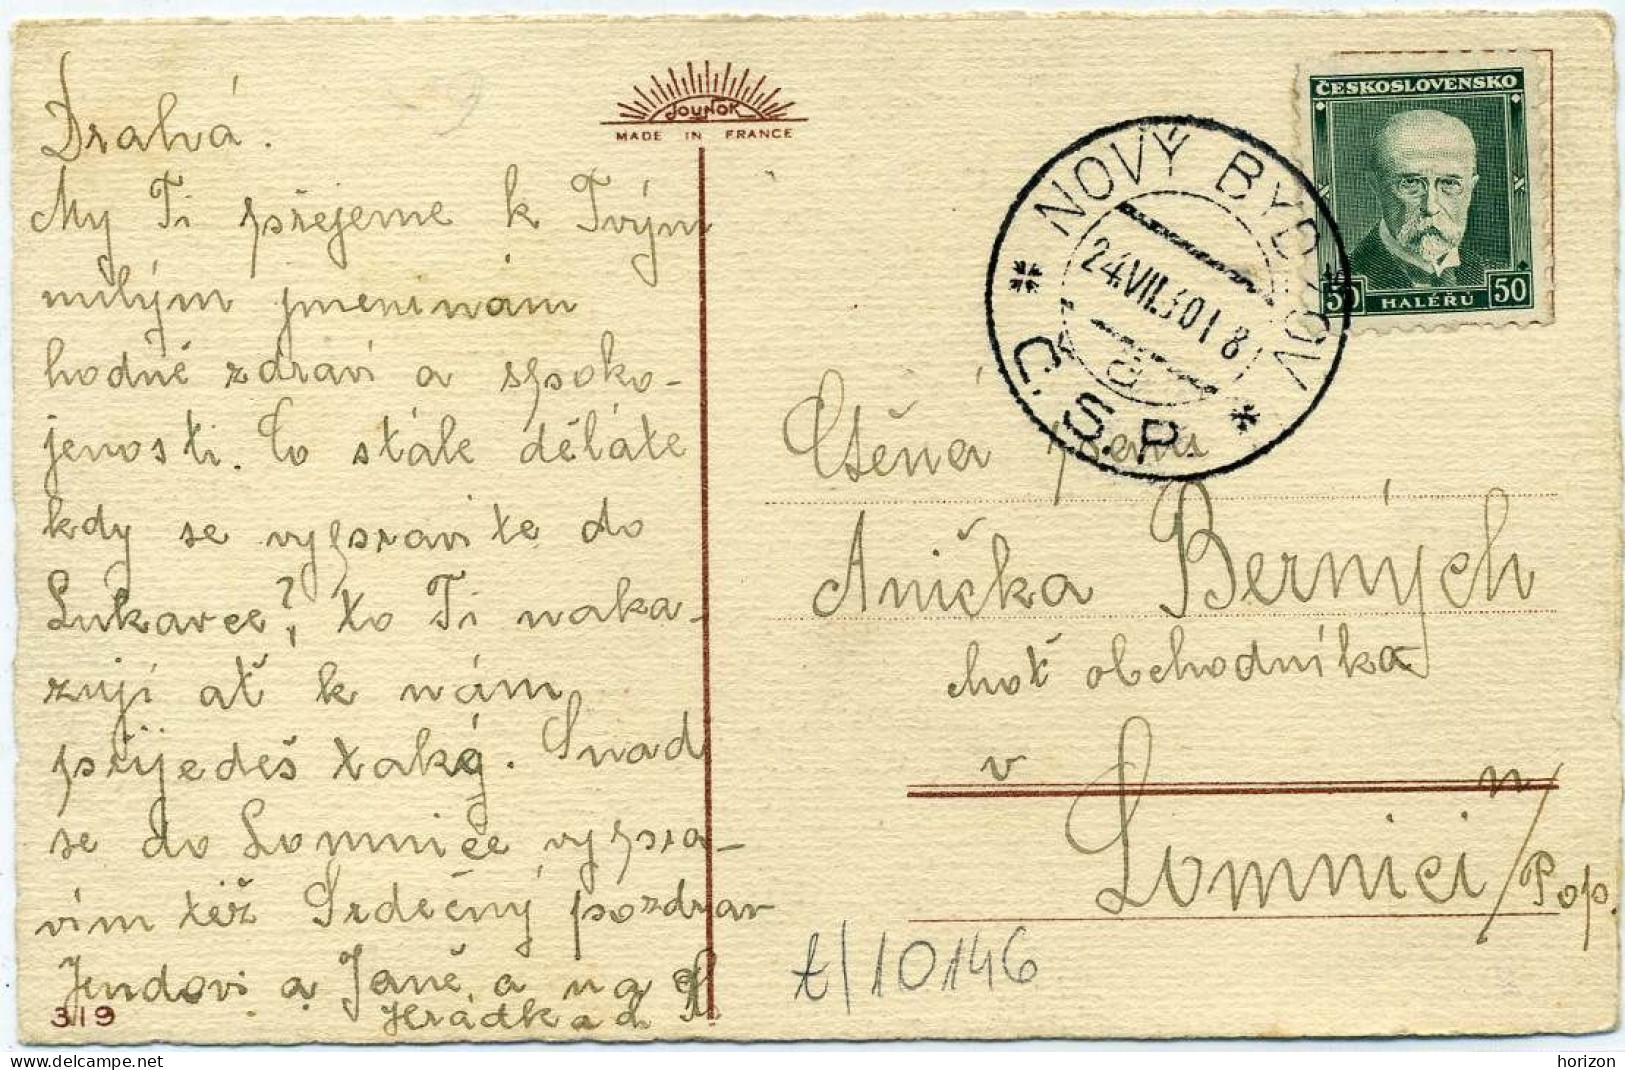 Drahá.
My Ti přejeme k Tvým
milým jmeninám
hodně zdraví a spoko-
jenosti. Co stále děláte
kdy se vypravíte do
Lukavce?, to Ti naka-
zují ať k nám
přijedeš také. Snad
se do Lomnice vypra-
vím též Srdečný pozdrav
Jendovi a Janě, a na
Hrádka d.
319
JOUNOK
MADE IN FRANCE
ČESKOSLOVENSKO
50 HALÉŘŮ 50
NOVÝ BYDŽOV
24.VII.30 18
a
Č.S.P.
Ctěná paní
Anička Berných
choť obchodníka
v
Lomnici n/Pop.
t/10146
horizon